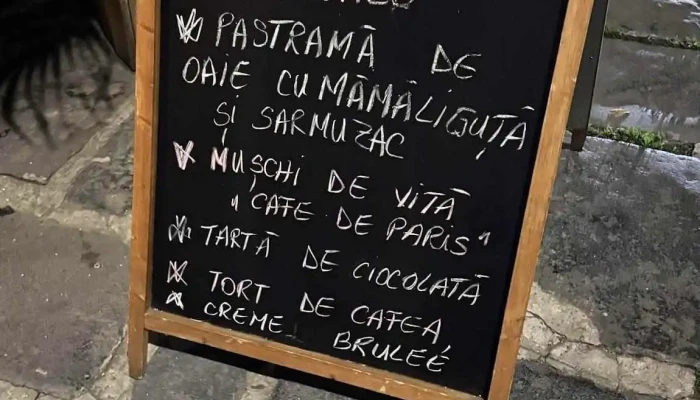 PASTRAMĂ DE
OAIE CU MĂMĂLIGUȚĂ
ȘI SARMUZAC
MUȘCHI DE VITĂ
"CAFE DE PARIS"
TARTĂ DE CIOCOLATĂ
TORT DE CAFEA,
CREME BRULEÉ